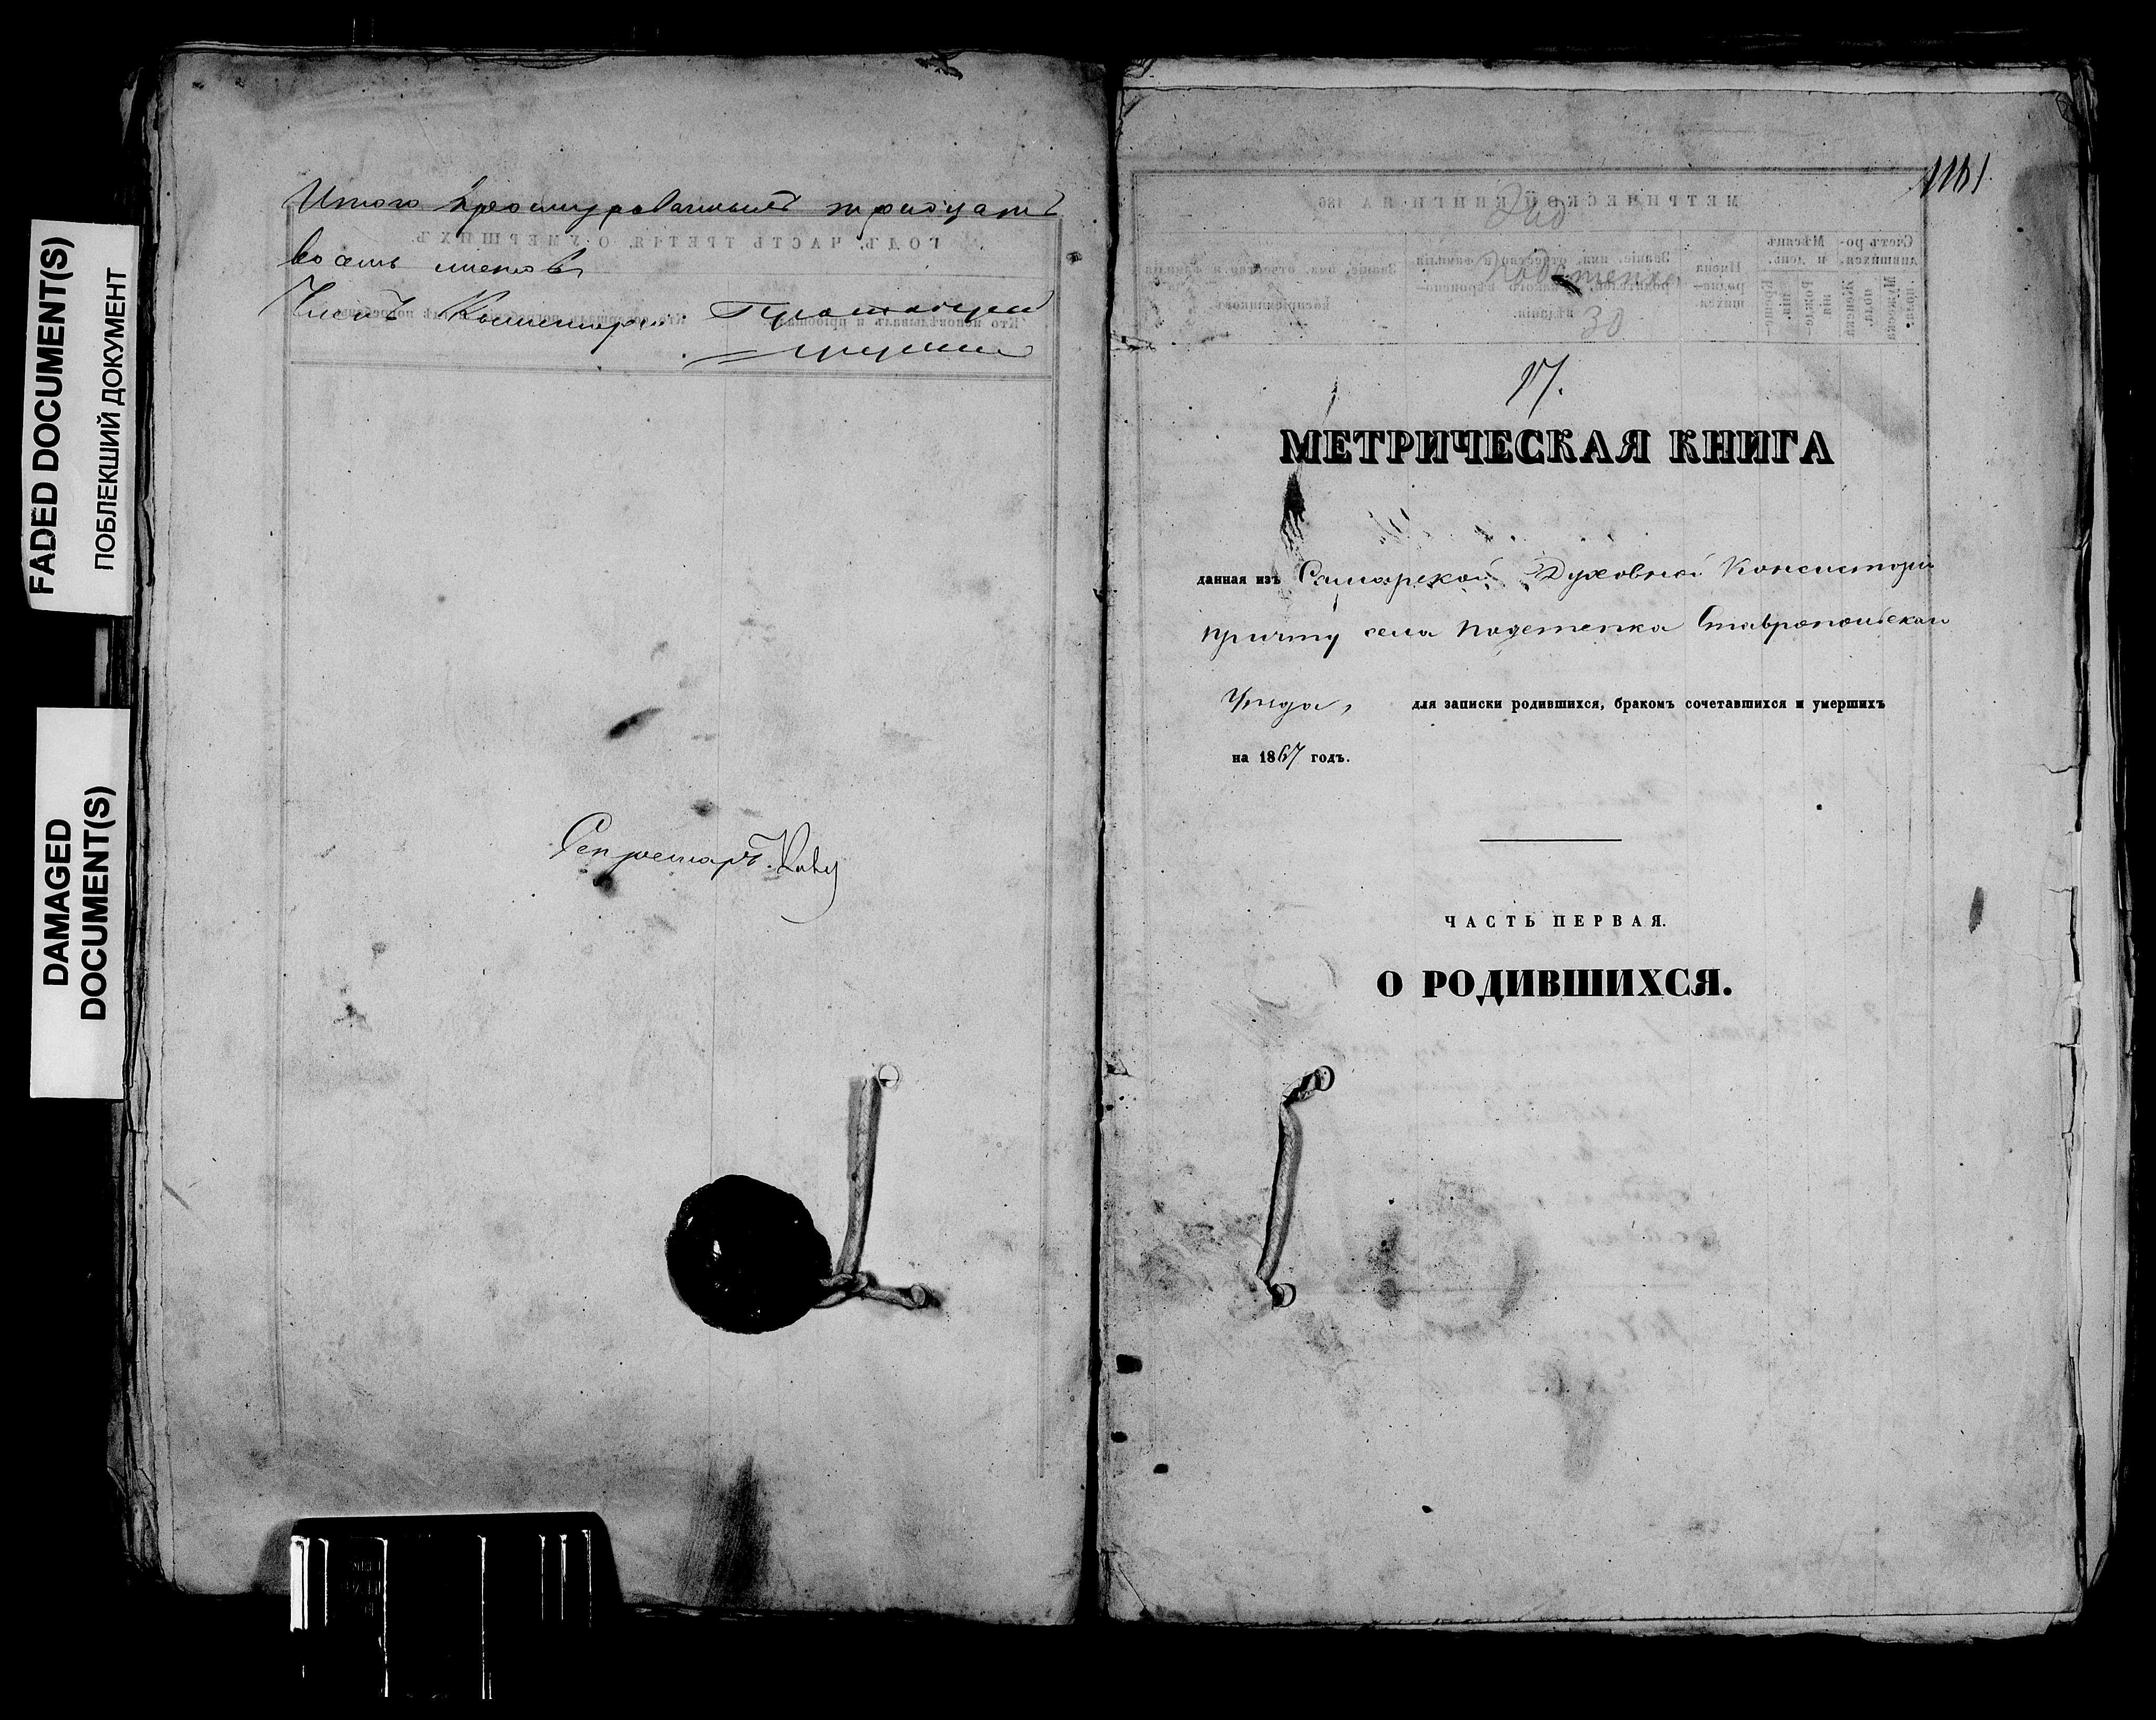 FADED DOCUMENT(S)
ПОБЛЕКШИЙ ДОКУМЕНТ
DAMAGED
DOCUMENT(S)
Итого прошнурованныхъ тридцать
восемь листовъ
Членъ Консисторіи Протоіерей
Секретарь
1181
Подстепки
30
17.
МЕТРИЧЕСКАЯ КНИГА
данная изъ Самарской Духовной Консисторіи
причту села Подстепка Ставропольскаго
Уѣзда, для записки родившихся, бракомъ сочетавшихся и умершихъ
на 1867 годъ.
ЧАСТЬ ПЕРВАЯ.
О РОДИВШИХСЯ.